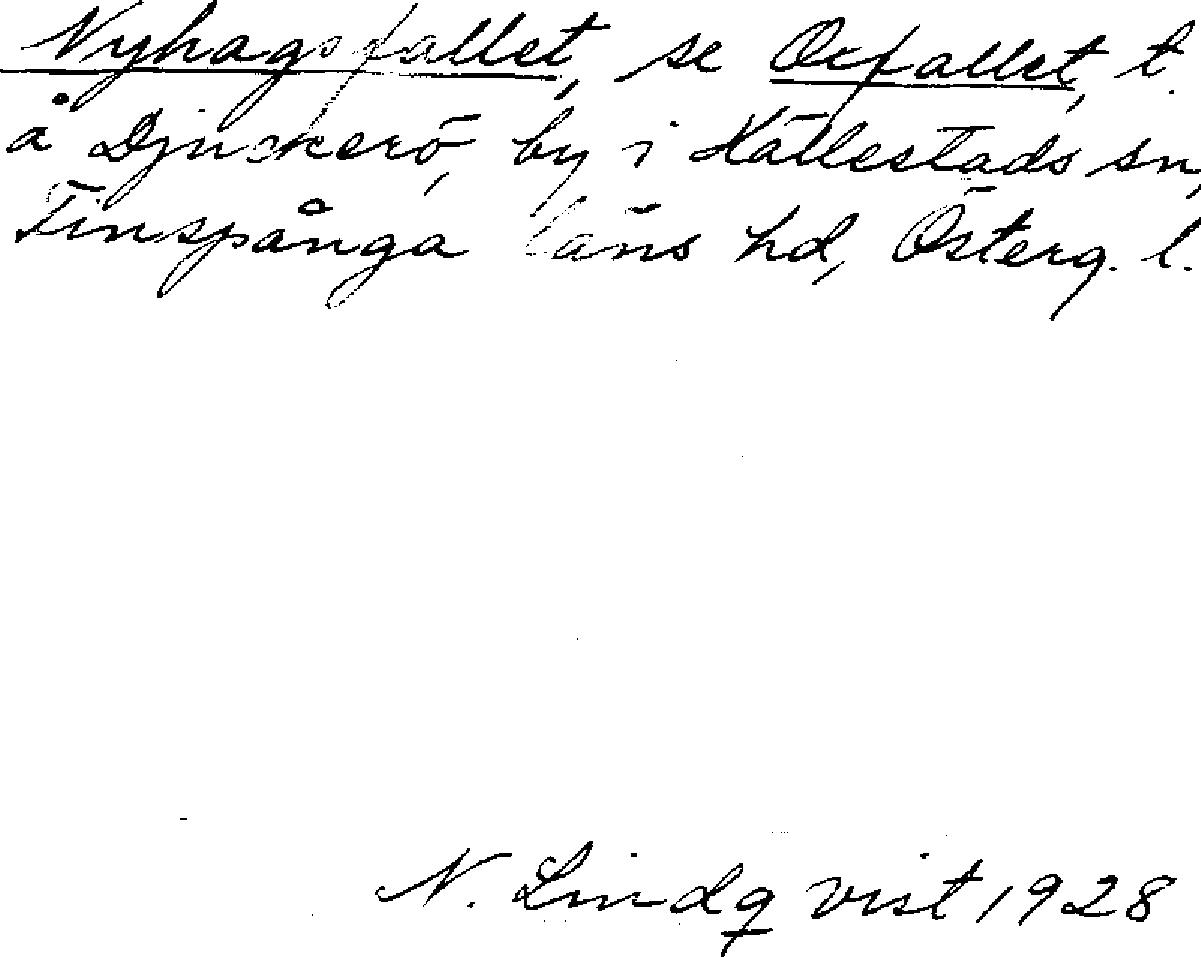 Nyhagsfallet, se Orfallet, t.
å Djuckerö, by i Hällestads sn,
Finspånga läns hd, Österg. l.
N. Lindqvist 1928